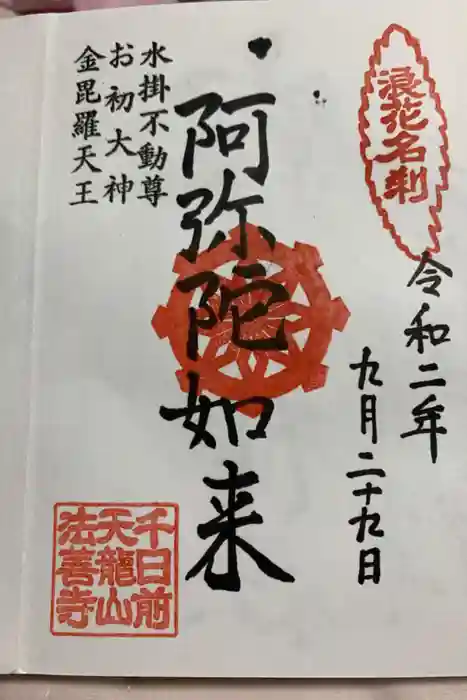 浪花名刹
令和二年
九月二十九日
阿弥陀如来
水掛不動尊
お初大神
金毘羅天王
千日前
天龍山
法善寺